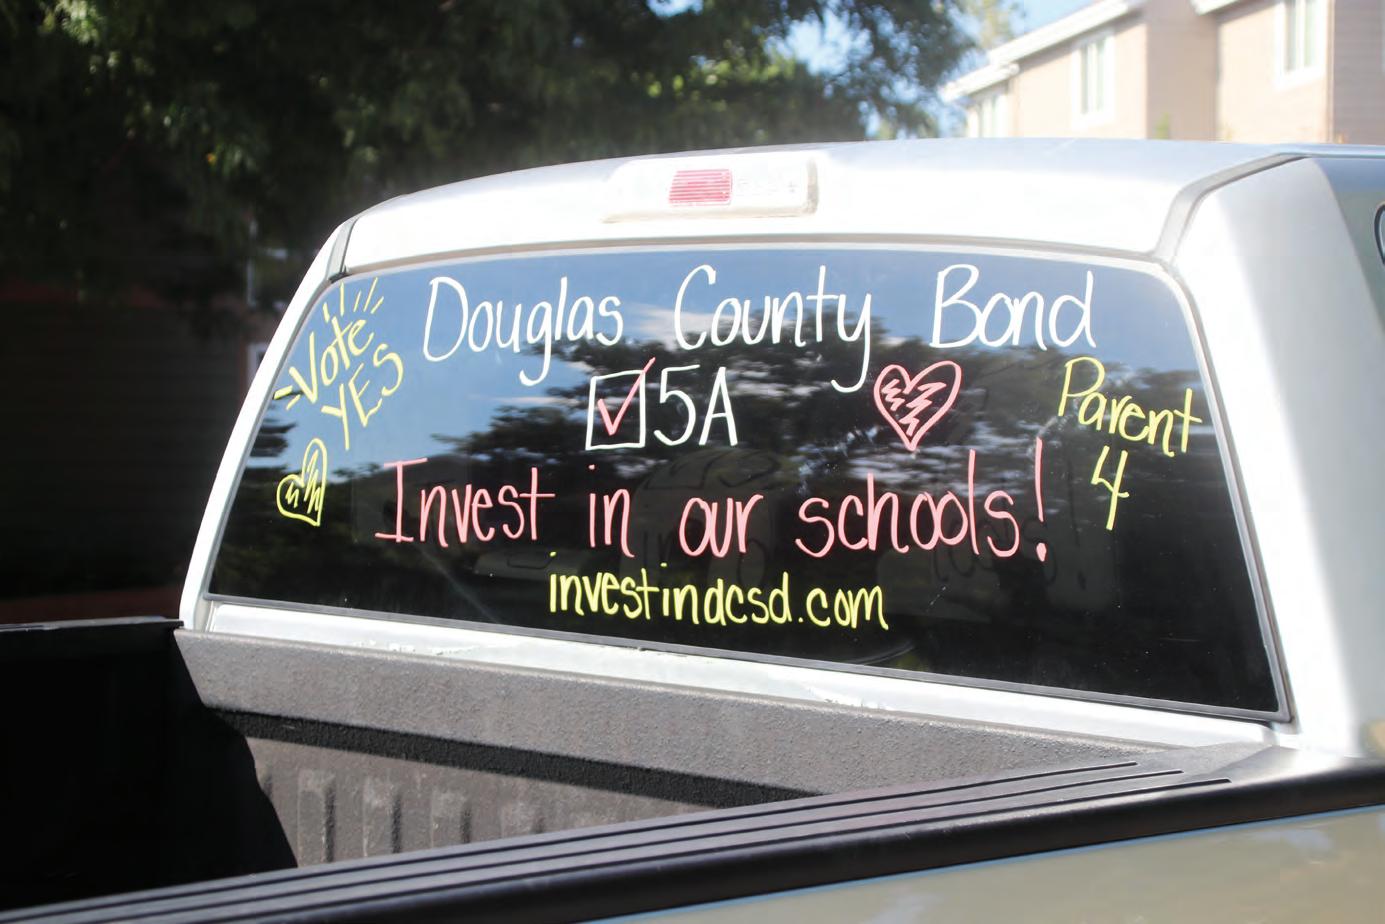 Vote
YES
Douglas County Bond
5A
Parent
4
Invest in our schools!
investindcsd.com